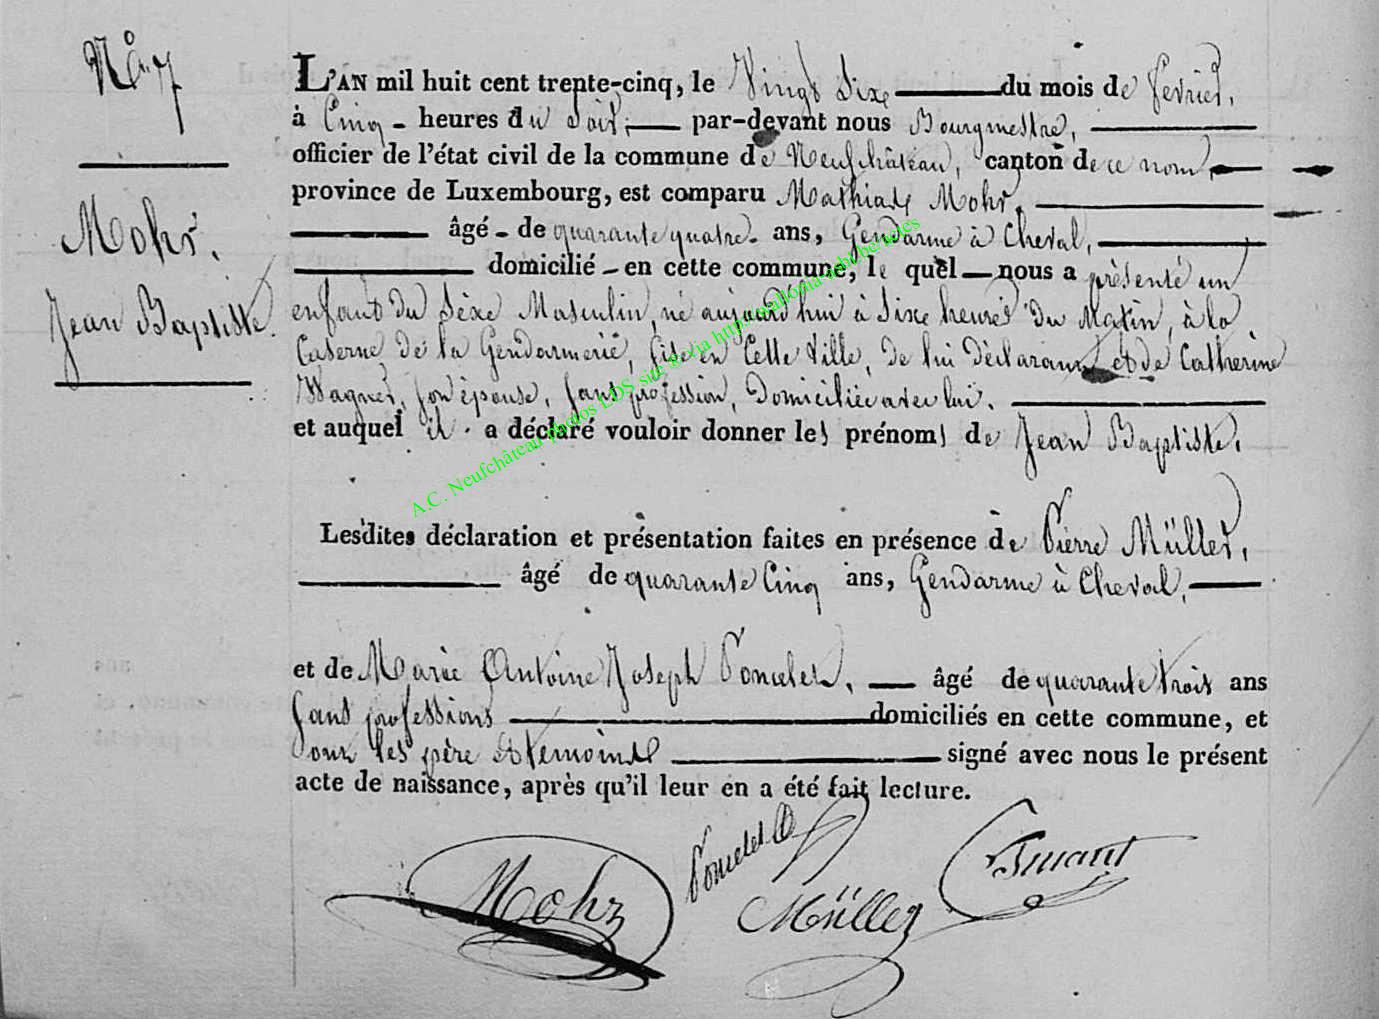 N° 7
Mohr.
Jean Baptiste.
L'AN mil huit cent trente-cinq, le Vingt Sixe du mois de fevrier,
à Cinq - heures du Soir, par-devant nous Bourgmestre,
officier de l'état civil de la commune de Neufchâteau, canton de ce nom,
province de Luxembourg, est comparu Mathias Mohr,
âgé - de quarante quatre - ans, Gendarme à Cheval,
domicilié - en cette commune, le quel - nous a présenté un
enfant du Sèxe Masculin, né aujourd'hui à Sixe heures du Matin, à la
Caserne de la Gendarmerie, sise en Cette Ville, de lui déclarant et de Catherine
Wagner, son épouse, sans profession, Domiciliée avec lui.
et auquel il a déclaré vouloir donner les prénoms de Jean Baptiste.
Lesdites déclaration et présentation faites en présence de Pierre Müller,
âgé de quarante Cinq ans, Gendarme à Cheval,
et de Marie Antoine Joseph Poncelet, âgé de quarante trois ans
sans professions domiciliés en cette commune, et
ont les père et temoins signé avec nous le présent
acte de naissance, après qu'il leur en a été fait lecture.
Mohr
Poncelet
Müller
A.C. Neufchâteau photos LDS site via